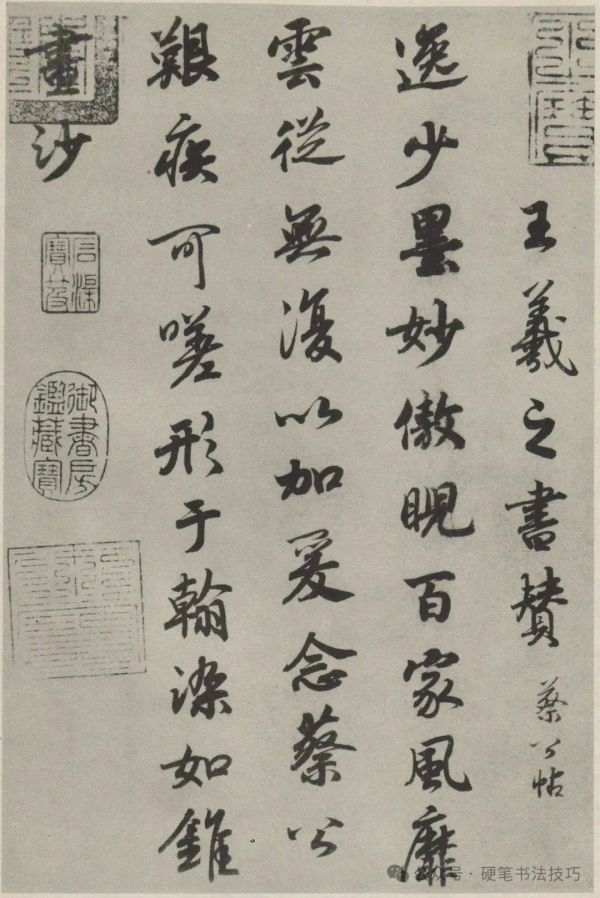 王羲之書贊 蔡公帖
逸少墨妙傲睨百家風靡
雲從無復以加爰念蔡公
艱疾可嗟形于翰染如錐
畫沙
御書房鑑藏寶
公众号 · 硬笔书法技巧